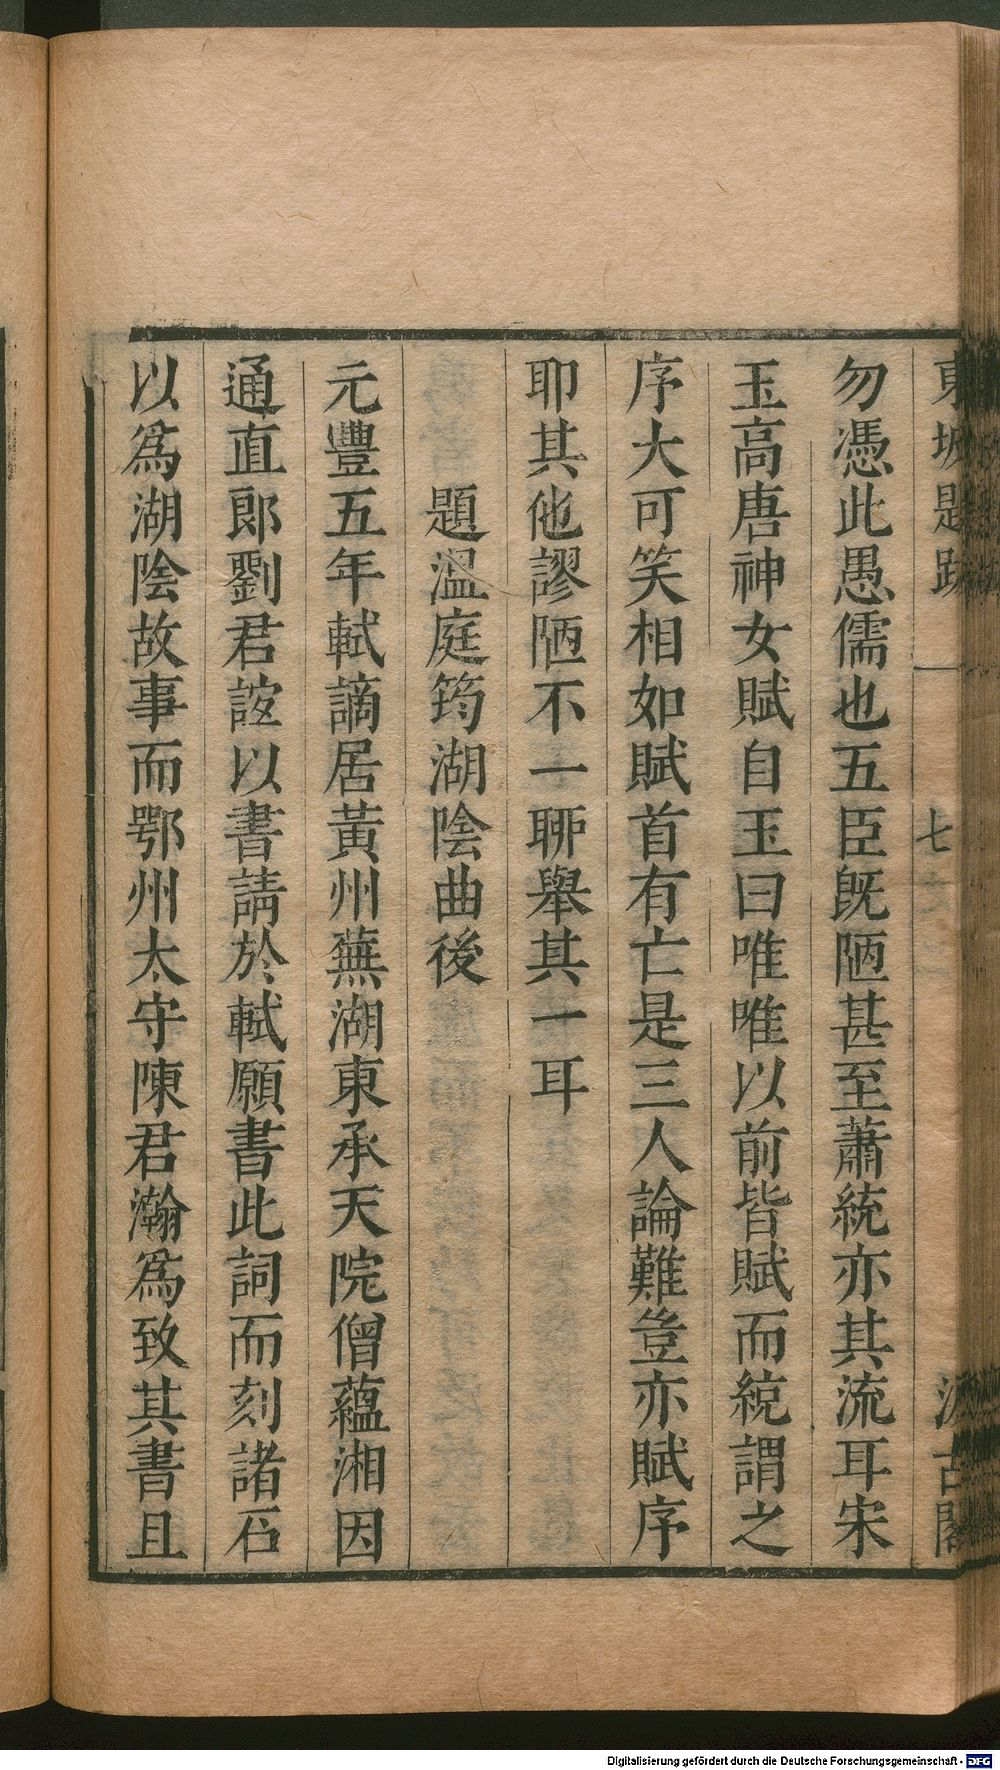 東坡題跋 一 七 汲古閣
勿憑此愚儒也五臣旣陋甚至蕭統亦其流耳宋
玉高唐神女賦自玉曰唯唯以前皆賦而統謂之
序大可笑相如賦首有亡是三人論難豈亦賦序
耶其他謬陋不一聊舉其一耳
題溫庭筠湖陰曲後
元豐五年軾謫居黃州蕪湖東承天院僧蘊湘因
通直郞劉君誼以書請於軾願書此詞而刻諸石
以爲湖陰故事而鄂州太守陳君瀚爲致其書且
Digitalisierung gefördert durch die Deutsche Forschungsgemeinschaft - DFG